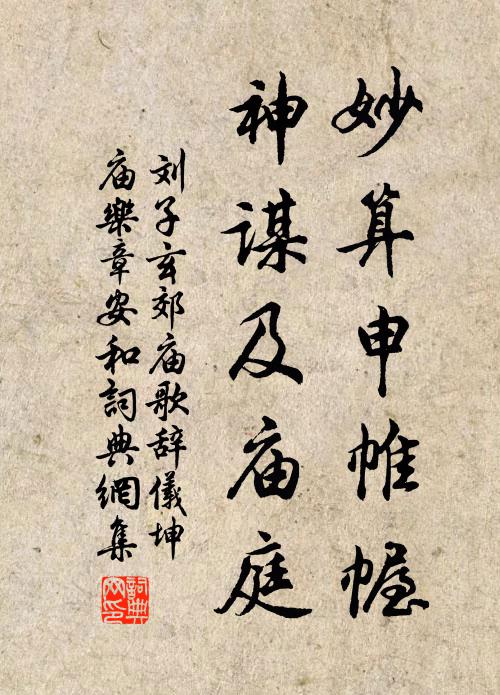 妙算申帷幄
神谋及庙庭
刘子玄郊庙歌辞儀坤
庙樂章安和詞典網集
詞典网印